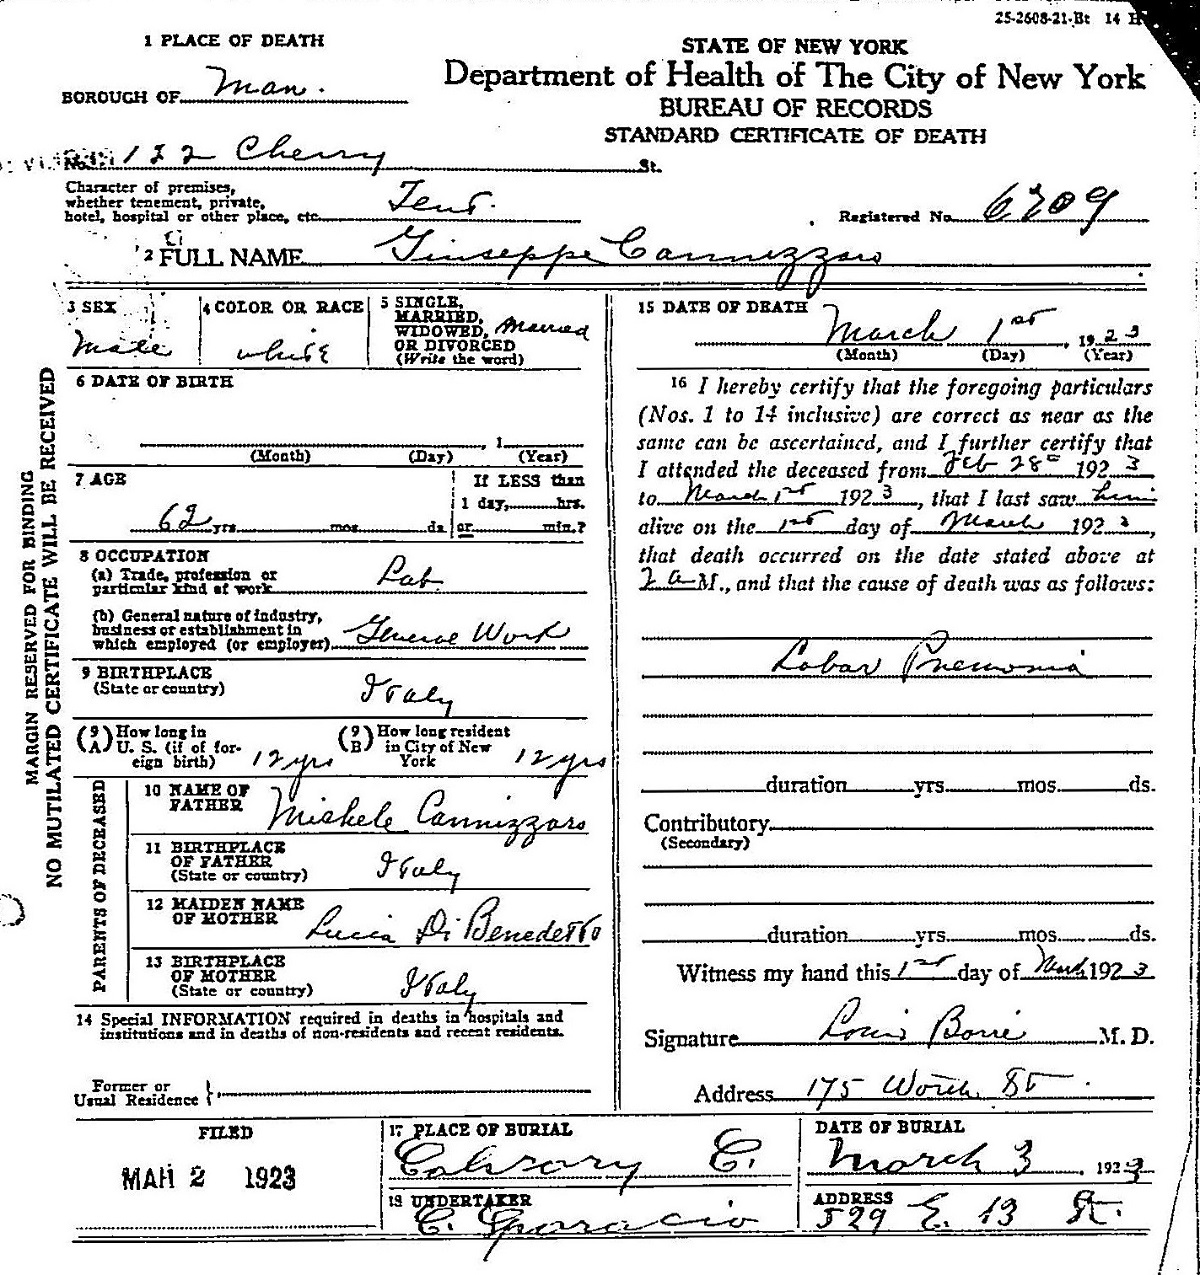 25-2608-21-Bt 14 H
1 PLACE OF DEATH
STATE OF NEW YORK
Department of Health of The City of New York
BUREAU OF RECORDS
STANDARD CERTIFICATE OF DEATH
BOROUGH OF Man.
No. 122 Cherry St.
Character of premises,
whether tenement, private,
hotel, hospital or other place, etc. Tent.
Registered No. 6209
2 FULL NAME Giuseppe Cannizzaro
3 SEX
Male
4 COLOR OR RACE
white
5 SINGLE,
MARRIED,
WIDOWED,
OR DIVORCED
(Write the word)
Married
6 DATE OF BIRTH
, 1
(Month) (Day) (Year)
7 AGE
62 yrs. mos. ds.
If LESS than
1 day, hrs.
or min.?
8 OCCUPATION
(a) Trade, profession or
particular kind of work Lab.
(b) General nature of industry,
business or establishment in
which employed (or employer) General Work
9 BIRTHPLACE
(State or country) Italy
(9 A) How long in
U. S. (if of for-
eign birth) 12 yrs
(9 B) How long resident
in City of New
York 12 yrs
PARENTS OF DECEASED
10 NAME OF
FATHER Michele Cannizzaro
11 BIRTHPLACE
OF FATHER
(State or country) Italy
12 MAIDEN NAME
OF MOTHER Lucia Di Benedetto
13 BIRTHPLACE
OF MOTHER
(State or country) Italy
14 Special INFORMATION required in deaths in hospitals and
institutions and in deaths of non-residents and recent residents.
Former or
Usual Residence
15 DATE OF DEATH
March 1st, 1923
(Month) (Day) (Year)
16 I hereby certify that the foregoing particulars
(Nos. 1 to 14 inclusive) are correct as near as the
same can be ascertained, and I further certify that
I attended the deceased from Feb 28th 1923
to March 1st 1923, that I last saw him
alive on the 1st day of March 1923,
that death occurred on the date stated above at
2 a M., and that the cause of death was as follows:
Lobar Pnemonia
duration yrs. mos. ds.
Contributory
(Secondary)
duration yrs. mos. ds.
Witness my hand this 1st day of March 1923
Signature Louis M. D.
Address 175 Worth St.
FILED
MAR 2 1923
17 PLACE OF BURIAL
Calvary C.
DATE OF BURIAL
March 3, 1923
18 UNDERTAKER
C. Sparacio
ADDRESS
529 E. 13 St.
MARGIN RESERVED FOR BINDING
NO MUTILATED CERTIFICATE WILL BE RECEIVED